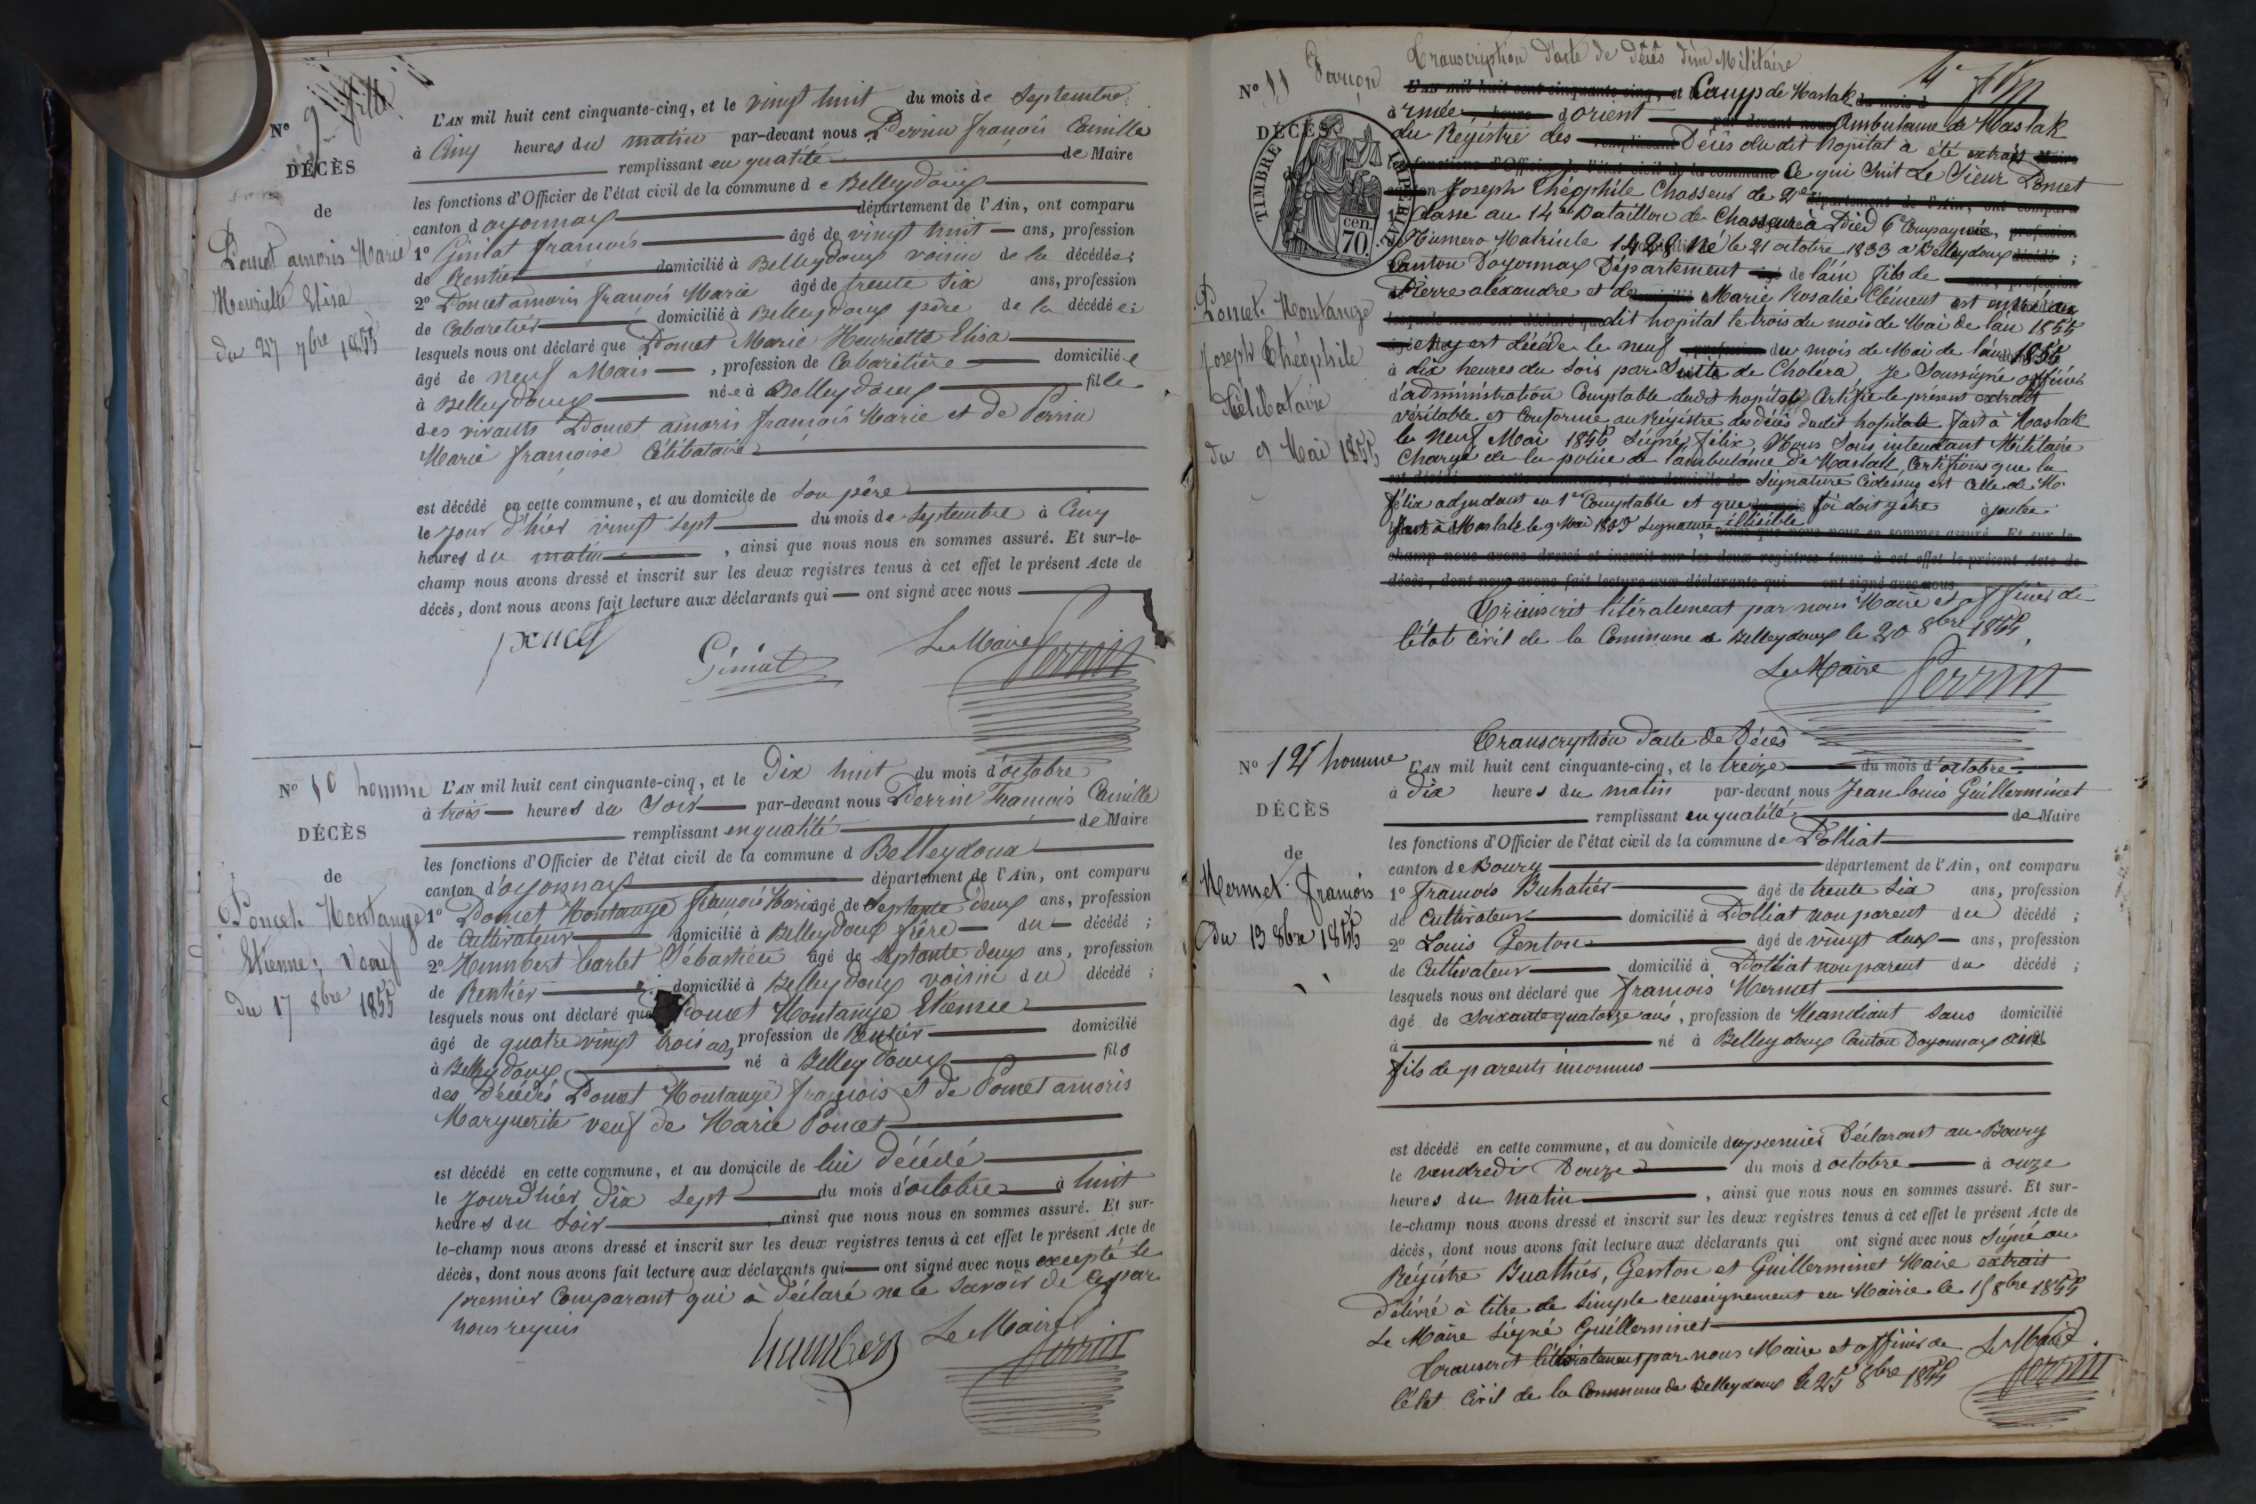 N° 9 fille
DÉCÈS
de
Poncet amoris Marie
Henriette Elisa
du 27 7bre 1855
L'AN mil huit cent cinquante-cinq, et le vingt huit du mois de Septembre
à Cinq heures du matin par-devant nous Perrin françois Camille
remplissant en qualité de Maire
les fonctions d'Officier de l'état civil de la commune de Belleydoux
canton d'oyonnax département de l'Ain, ont comparu
1° Giniat francois âgé de vingt huit ans, profession
de Rentier domicilié à Belleydoux voisin de la décédée;
2° Poncet amoris françois Marie âgé de trente six ans, profession
de Cabaretier domicilié à Belleydoux père de la décédée;
lesquels nous ont déclaré que Poncet Marie Henriette Elisa
âgé de neuf Mois, profession de Cabaretière domiciliée
à Belleydoux née à Belleydoux fille
des vivants Poncet amoris françois Marie et de Perrin
Marie françoise Célibataire
est décédé en cette commune, et au domicile de Son père
le jour d'hier vingt sept du mois de Septembre à Cinq
heures du matin, ainsi que nous nous en sommes assuré. Et sur-le-
champ nous avons dressé et inscrit sur les deux registres tenus à cet effet le présent Acte de
décès, dont nous avons fait lecture aux déclarants qui ont signé avec nous
poncet
Giniat
Le Maire Perrin
N° 10 homme
DÉCÈS
de
Poncet Montange
Etienne, Veuf
du 17 8bre 1855
L'AN mil huit cent cinquante-cinq, et le Dix huit du mois d'octobre
à trois heures du Soir par-devant nous Perrin François Camille
remplissant en qualité de Maire
les fonctions d'Officier de l'état civil de la commune d Belleydoux
canton d'oyonnax département de l'Ain, ont comparu
1° Poncet Montange françois Marie âgé de Septante deux ans, profession
de Cultivateur domicilié à Belleydoux frère du décédé;
2° Humbert barbet Sébastien âgé de Septante deux ans, profession
de Rentier domicilié à Belleydoux voisin du décédé;
lesquels nous ont déclaré que Poncet Montange Etienne
âgé de quatre vingt trois ans, profession de Rentier domicilié
à Belleydoux né à Belleydoux fils
des Décédés Poncet Montange françois et de Poncet amoris
Marguerite veuf de Marie Poncet
est décédé en cette commune, et au domicile de lui Décédé
le jour d'hier Dix Sept du mois d'octobre à huit
heures du Soir, ainsi que nous nous en sommes assuré. Et sur-
le-champ nous avons dressé et inscrit sur les deux registres tenus à cet effet le présent Acte de
décès, dont nous avons fait lecture aux déclarants qui ont signé avec nous excepté le
premier Comparant qui à déclaré ne le Savoir de ce par
nous requis
humbert
Le Maire Perrin
Transcription d'acte de Décès d'un Militaire
N° 11 Garçon
DÉCÈS
TIMBRE IMPÉRIAL
70 cen.
Poncet Montange
Joseph Théophile
Célibataire
du 9 Mai 1855
L'AN mil huit cent cinquante-cinq, et Camp de Maslak
armée d'orient Ambulance de Maslak
du Régistre des Décès du dit hopital à été extrait
Ce qui Suit Le Sieur Poncet
Joseph Théophile Chasseur de 2e
Classe au 14e Bataillon de Chasseurs à Pied 6e Compagnie,
Numero Matricule 1428 Né le 21 octobre 1833 à Belleydoux
Canton D'oyonnax Département de l'ain fils de
Pierre alexandre et de Marie Rosalie Clément est entré au
dit hopital le trois du mois de Mai de l'an 1855
et y est décédé le neuf du mois de Mai de l'an 1855
à dix heures du Soir par Suite de Choléra Je Soussigné officier
d'administration Comptable dudit hopital Certifie le présent extrait
véritable et Conforme au Régistre des décès dudit hopital fait à Maslak
le Neuf Mai 1855 Signé félix Nous Sous intendant Militaire
Chargé de la police de l'ambulance de Maslak, Certifions que la
Signature Cidessus est Celle de Mr
félix adjudant en 1er Comptable et que foi doit y être ajoutée
fait à Maslak le 9 Mai 1855 Signature illisible
champ nous avons dressé et inscrit sur les deux registres tenus à cet effet le présent Acte de
décès, dont nous avons fait lecture aux déclarants qui ont signé avec nous
Transcrit litéralement par nous Maire et officier de
l'état Civil de la Commune de Belleydoux le 20 8bre 1855
Le Maire Perrin
Transcryption d'acte de Décès
N° 12 homme
DÉCÈS
de
Mermet françois
du 13 8bre 1855
L'AN mil huit cent cinquante-cinq, et le treize du mois d'octobre
à dix heures du matin par-devant nous Jean louis Guillerminet
remplissant en qualité de Maire
les fonctions d'Officier de l'état civil de la commune de Polliat
canton de Bourg département de l'Ain, ont comparu
1° françois Buhatier âgé de trente Six ans, profession
de Cultivateur domicilié à Polliat non parent du décédé;
2° Louis Genton âgé de vingt deux ans, profession
de Cultivateur domicilié à Polliat non parent du décédé;
lesquels nous ont déclaré que françois Mermet
âgé de Soixante quatorze ans, profession de Mandiant Sans domicilié
à né à Belleydoux Canton D'oyonnax ain
fils de parents inconnus
est décédé en cette commune, et au domicile du premier Déclarant au Bourg
le vendredi Douze du mois d'octobre à onze
heures du matin, ainsi que nous nous en sommes assuré. Et sur-
le-champ nous avons dressé et inscrit sur les deux registres tenus à cet effet le présent Acte de
décès, dont nous avons fait lecture aux déclarants qui ont signé avec nous Signé au
Régistre Buathier, Genton et Guillerminet Maire extrait
Délivré à titre de Simple renseignement en Mairie le 15 8bre 1855
Le Maire Signé Guillerminet
Transcrit littéralement par nous Maire et officier de
l'état Civil de la Commune de Belleydoux le 25 8bre 1855
Le Maire
Perrin